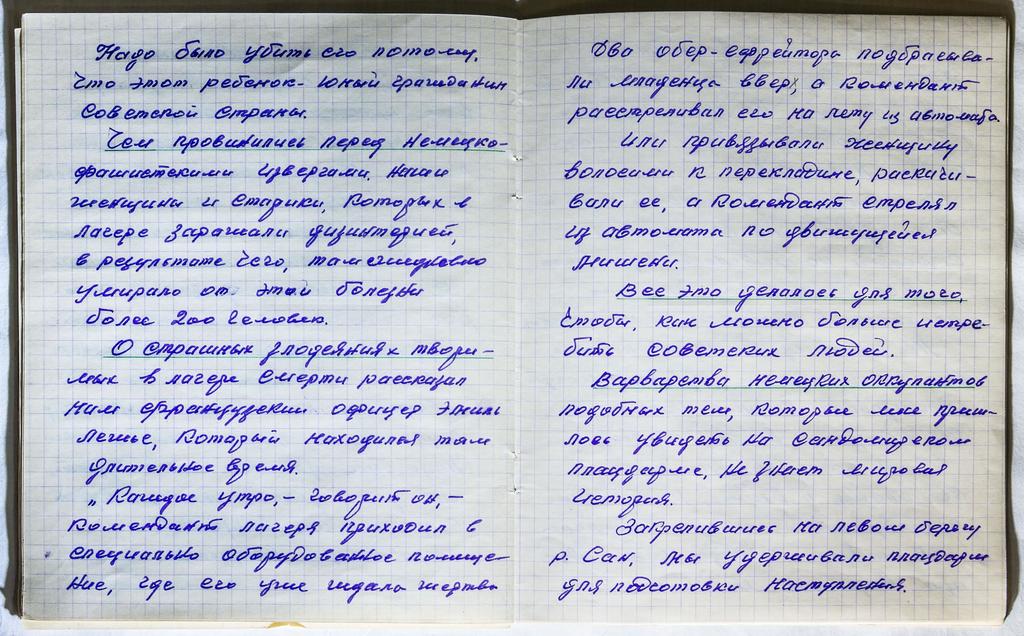 Надо было убить его потому,
что этот ребенок- юный гражданин
Советской страны.
Чем провинились перед немецко-
фашистскими извергами, наши
женщины и старики, которых в
лагере заражали дизинтерией,
в результате чего, там ежедневно
умирало от этой болезни
более 200 человек.
О страшных злодеяниях твори-
мых в лагере смерти рассказал
нам французский офицер Эмиль
Легше, который находился там
длительное время.
„Каждое утро,- говорит он,-
комендант лагеря приходил в
специально оборудованное помеще-
ние, где его уже ждала жертва
Два обер-ефрейтора подбрасыва-
ли младенца вверх, а комендант
расстреливал его на лету из автомата.
Или привязывали женщину
волосами к перекладине, раскачи-
вали ее, а комендант стрелял
из автомата по движущейся
мишени.
Все это делалось для того,
чтобы, как можно больше истре-
бить советских людей.
Варварства немецких оккупантов
подобных тем, которые мне приш-
лось увидеть на Сандомирском
плацдарме, не знает мировая
история.
Закрепившись на левом берегу
р. Сан, мы удерживали плацдарм
для подготовки наступления.